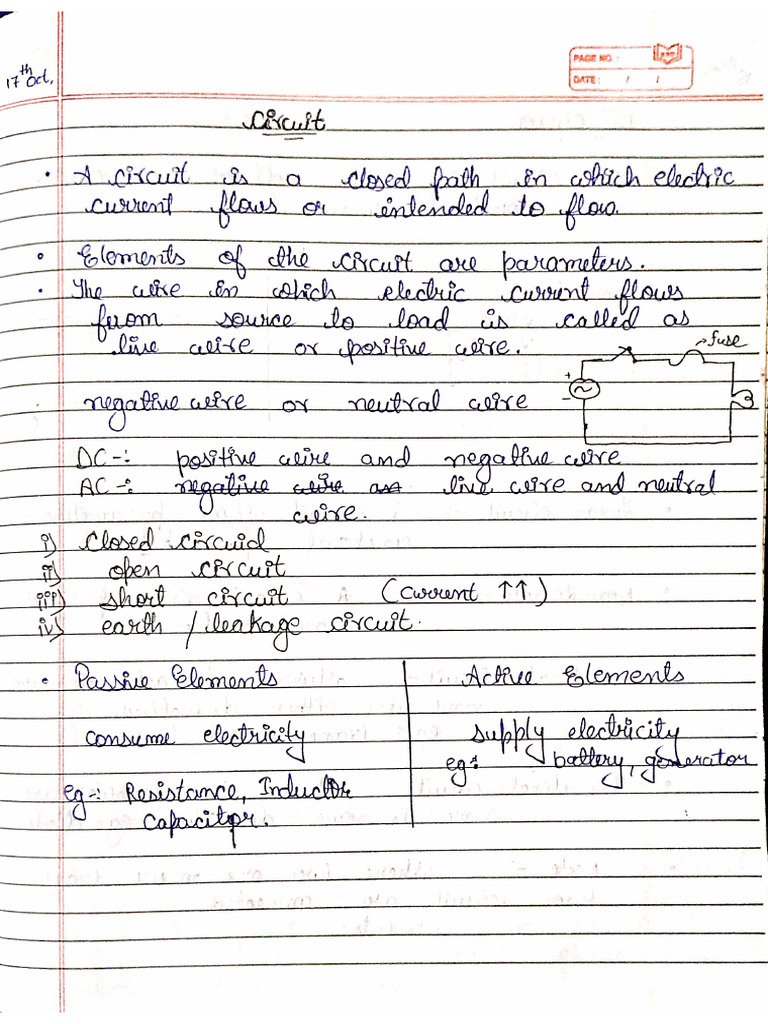 17th Oct.
PAGE NO.:
DATE: / /
Circuit
• A circuit is a closed path in which electric
current flows or intended to flow.
• Elements of the circuit are parameters.
• The wire in which electric current flows
from source to load is called as
live wire or positive wire.
→fuse
+
-
negative wire or neutral wire
DC-: positive wire and negative wire
AC-: negative wire as live wire and neutral
wire.
i) closed circuid
ii) open circuit
iii) short circuit (current ↑↑)
iv) earth / leakage circuit.
• Passive Elements
consume electricity
eg-: Resistance, Inductor
Capacitor.
Active Elements
supply electricity
eg: battery, generator